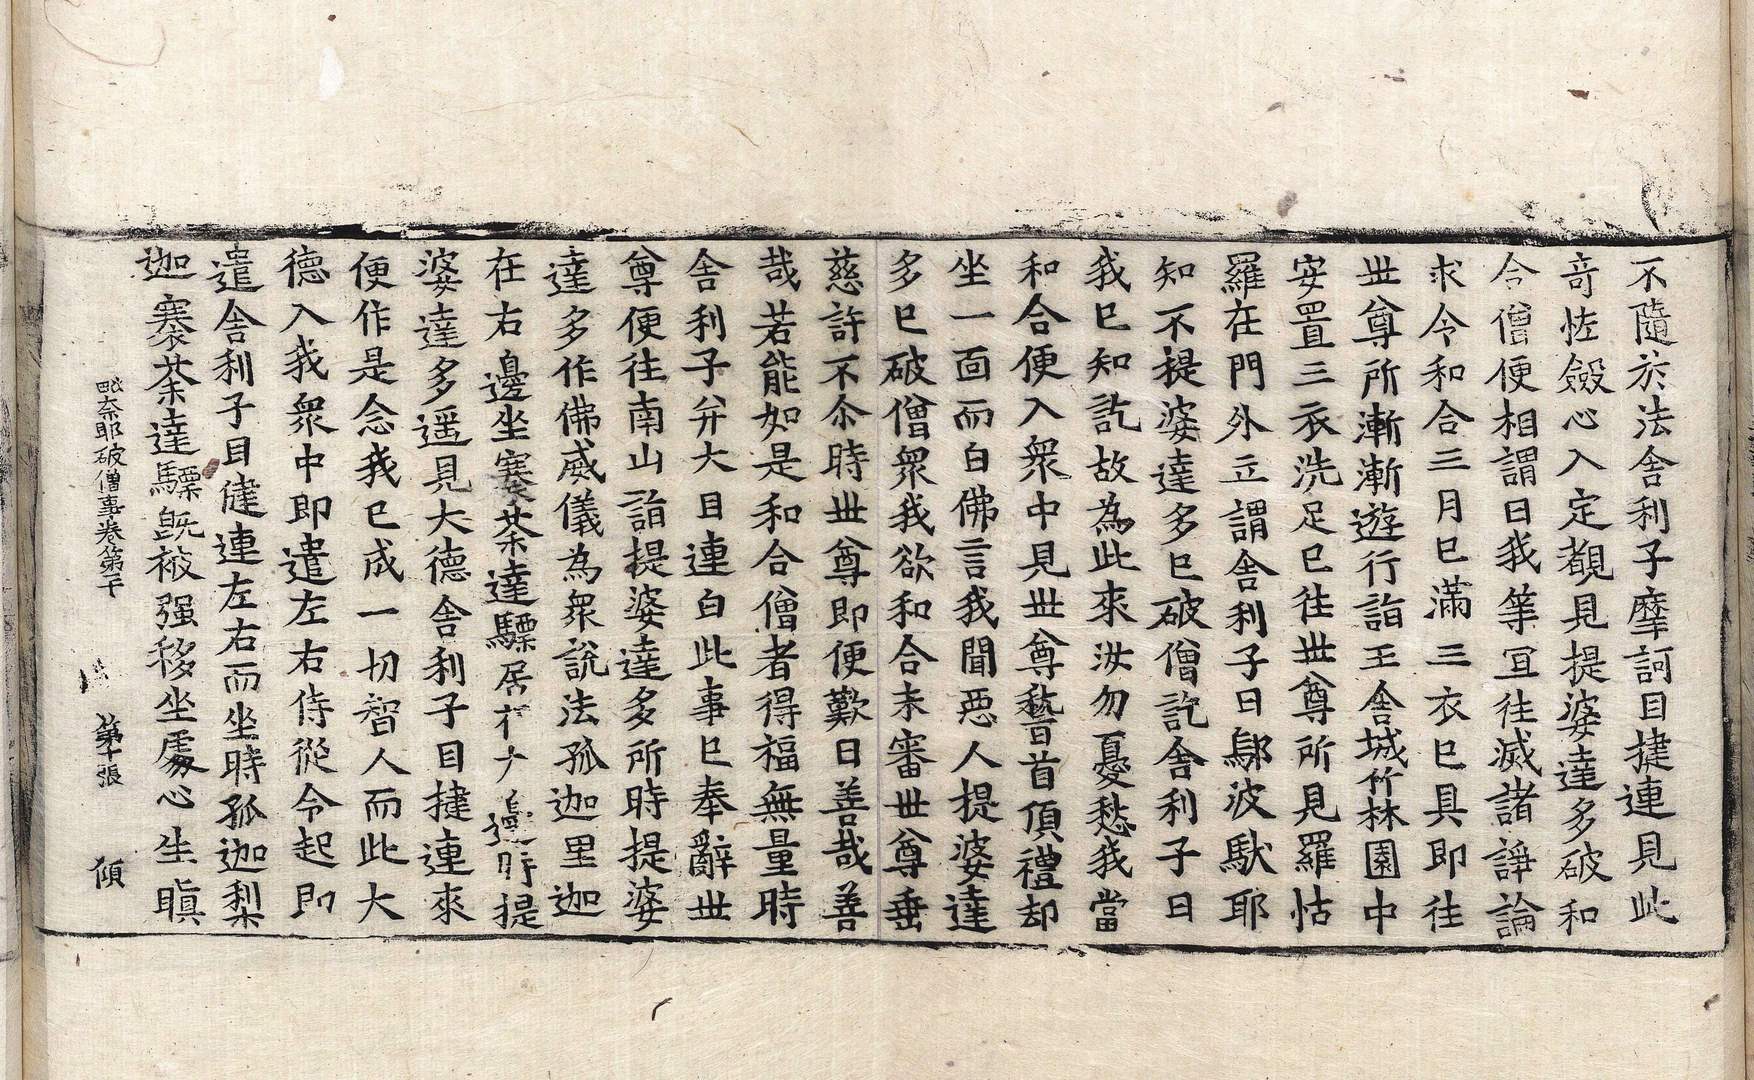 不隨於法舍利子摩訶目揵連見此
竒恠斂心入定觀見提婆達多破和
合僧便相謂曰我等冝往滅諸諍論
求令和合三月已滿三衣已具即往
丗尊所漸漸遊行詣王舍城竹林園中
安置三衣洗足已往丗尊所見羅怙
羅在門外立謂舍利子曰鄔波馱耶
知不提婆達多已破僧訖舍利子曰
我已知訖故為此來汝勿憂愁我當
和合便入衆中見丗尊稽首頂禮却
坐一面而白佛言我聞惡人提婆達
多已破僧衆我欲和合未審丗尊垂
慈許不尒時丗尊即便歎曰善哉善
哉若能如是和合僧者得福無量時
舍利子并大目連白此事已奉辭丗
尊便往南山詣提婆達多所時提婆
達多作佛威儀為衆說法孤迦里迦
在右邊坐褰荼達驃居於左邊時提
婆達多遥見大德舍利子目揵連來
便作是念我已成一切智人而此大
德入我衆中即遣左右侍從令起即
遣舍利子目揵連左右而坐時孤迦梨
迦褰荼達驃旣被强移坐處心生瞋
毗奈耶破僧事卷第二十 第十張 傾